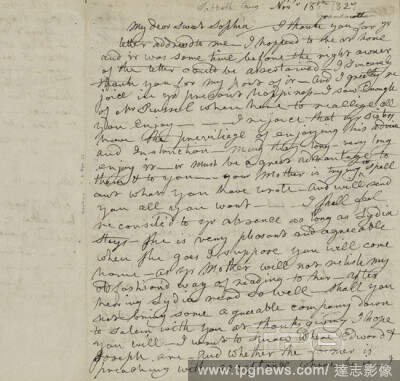 Suffolk Nov 18th 1827
My dear Sweet Sophia I thank you for yr
letter addressed to me — I hopened to the at home
and it was some time before the right owner
of the letter could be ascertained I sincerely
thank you for my part of it — And I greatly re
joice in yr present happiness — I saw Dwngle
of Mr Russell where had to realiseg all
you Enjoy — I rejoice that yr Sister
have the priveilege of enjoying his
and Instruction — May they long — very long
enjoy it — it must be a great advantage to
them & to you — your Mother is trying to spell
out whare you have wrote — and will send
you all you want — I shall feel
reconsiled to yr absence as long as Lydia
stays — She is very pleasant and agreeable
where She goes I suppose you will come
home — as yr Mother will not relish my
old fashiond way of reading to her — after
hering Lydia read so well — Shall you
not bring some agreeable company down
to Salem with you at thanksgiving I hope
you will — I want to know where Edward &
Joseph are — and whether the former is
preaching with
www.tpgnews.com / 達志影像